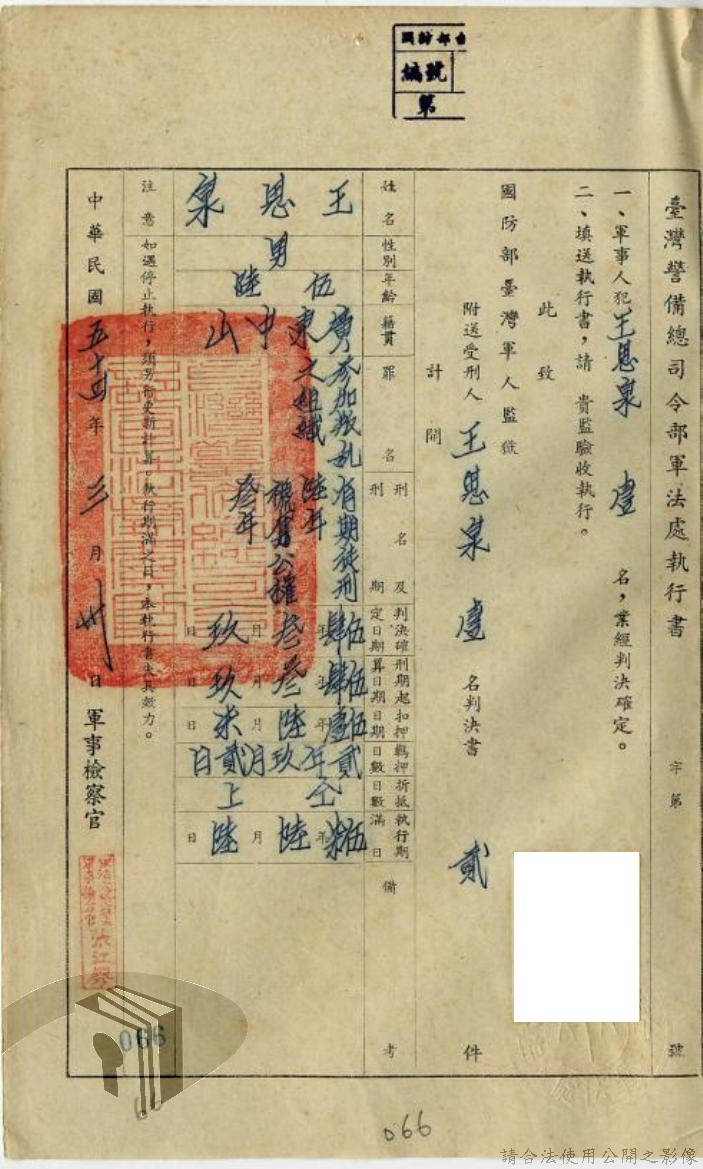 國防部
編號
第
臺灣警備總司令部軍法處執行書
字第
號
一、軍事人犯王恩泉 壹 名，業經判決確定。
二、填送執行書，請 貴監驗收執行。
此致
國防部臺灣軍人監獄
附送受刑人 王恩泉 壹 名判決書 貳 件
計開
姓名
性別
年齡
籍貫
罪名
刑名及刑期
判決確定日期
刑期起算日期
扣押日期
羈押日數
折抵日數
執行期滿日
備考
王恩泉
男
伍陸
廣東中山
參加叛乱之組織
有期徒刑陸年
褫奪公權叁年
伍肆年叁月玖日
伍肆年叁月玖日
伍壹年陸月柒日
貳年玖月貳日
仝上
伍柒年陸月陸日
注意
如遇停止執行，須另行更新計算。執行期滿之日，本執行書失其效力。
中華民國五十四年三月卅日
軍事檢察官
066
66
066
請合法使用公開之影像